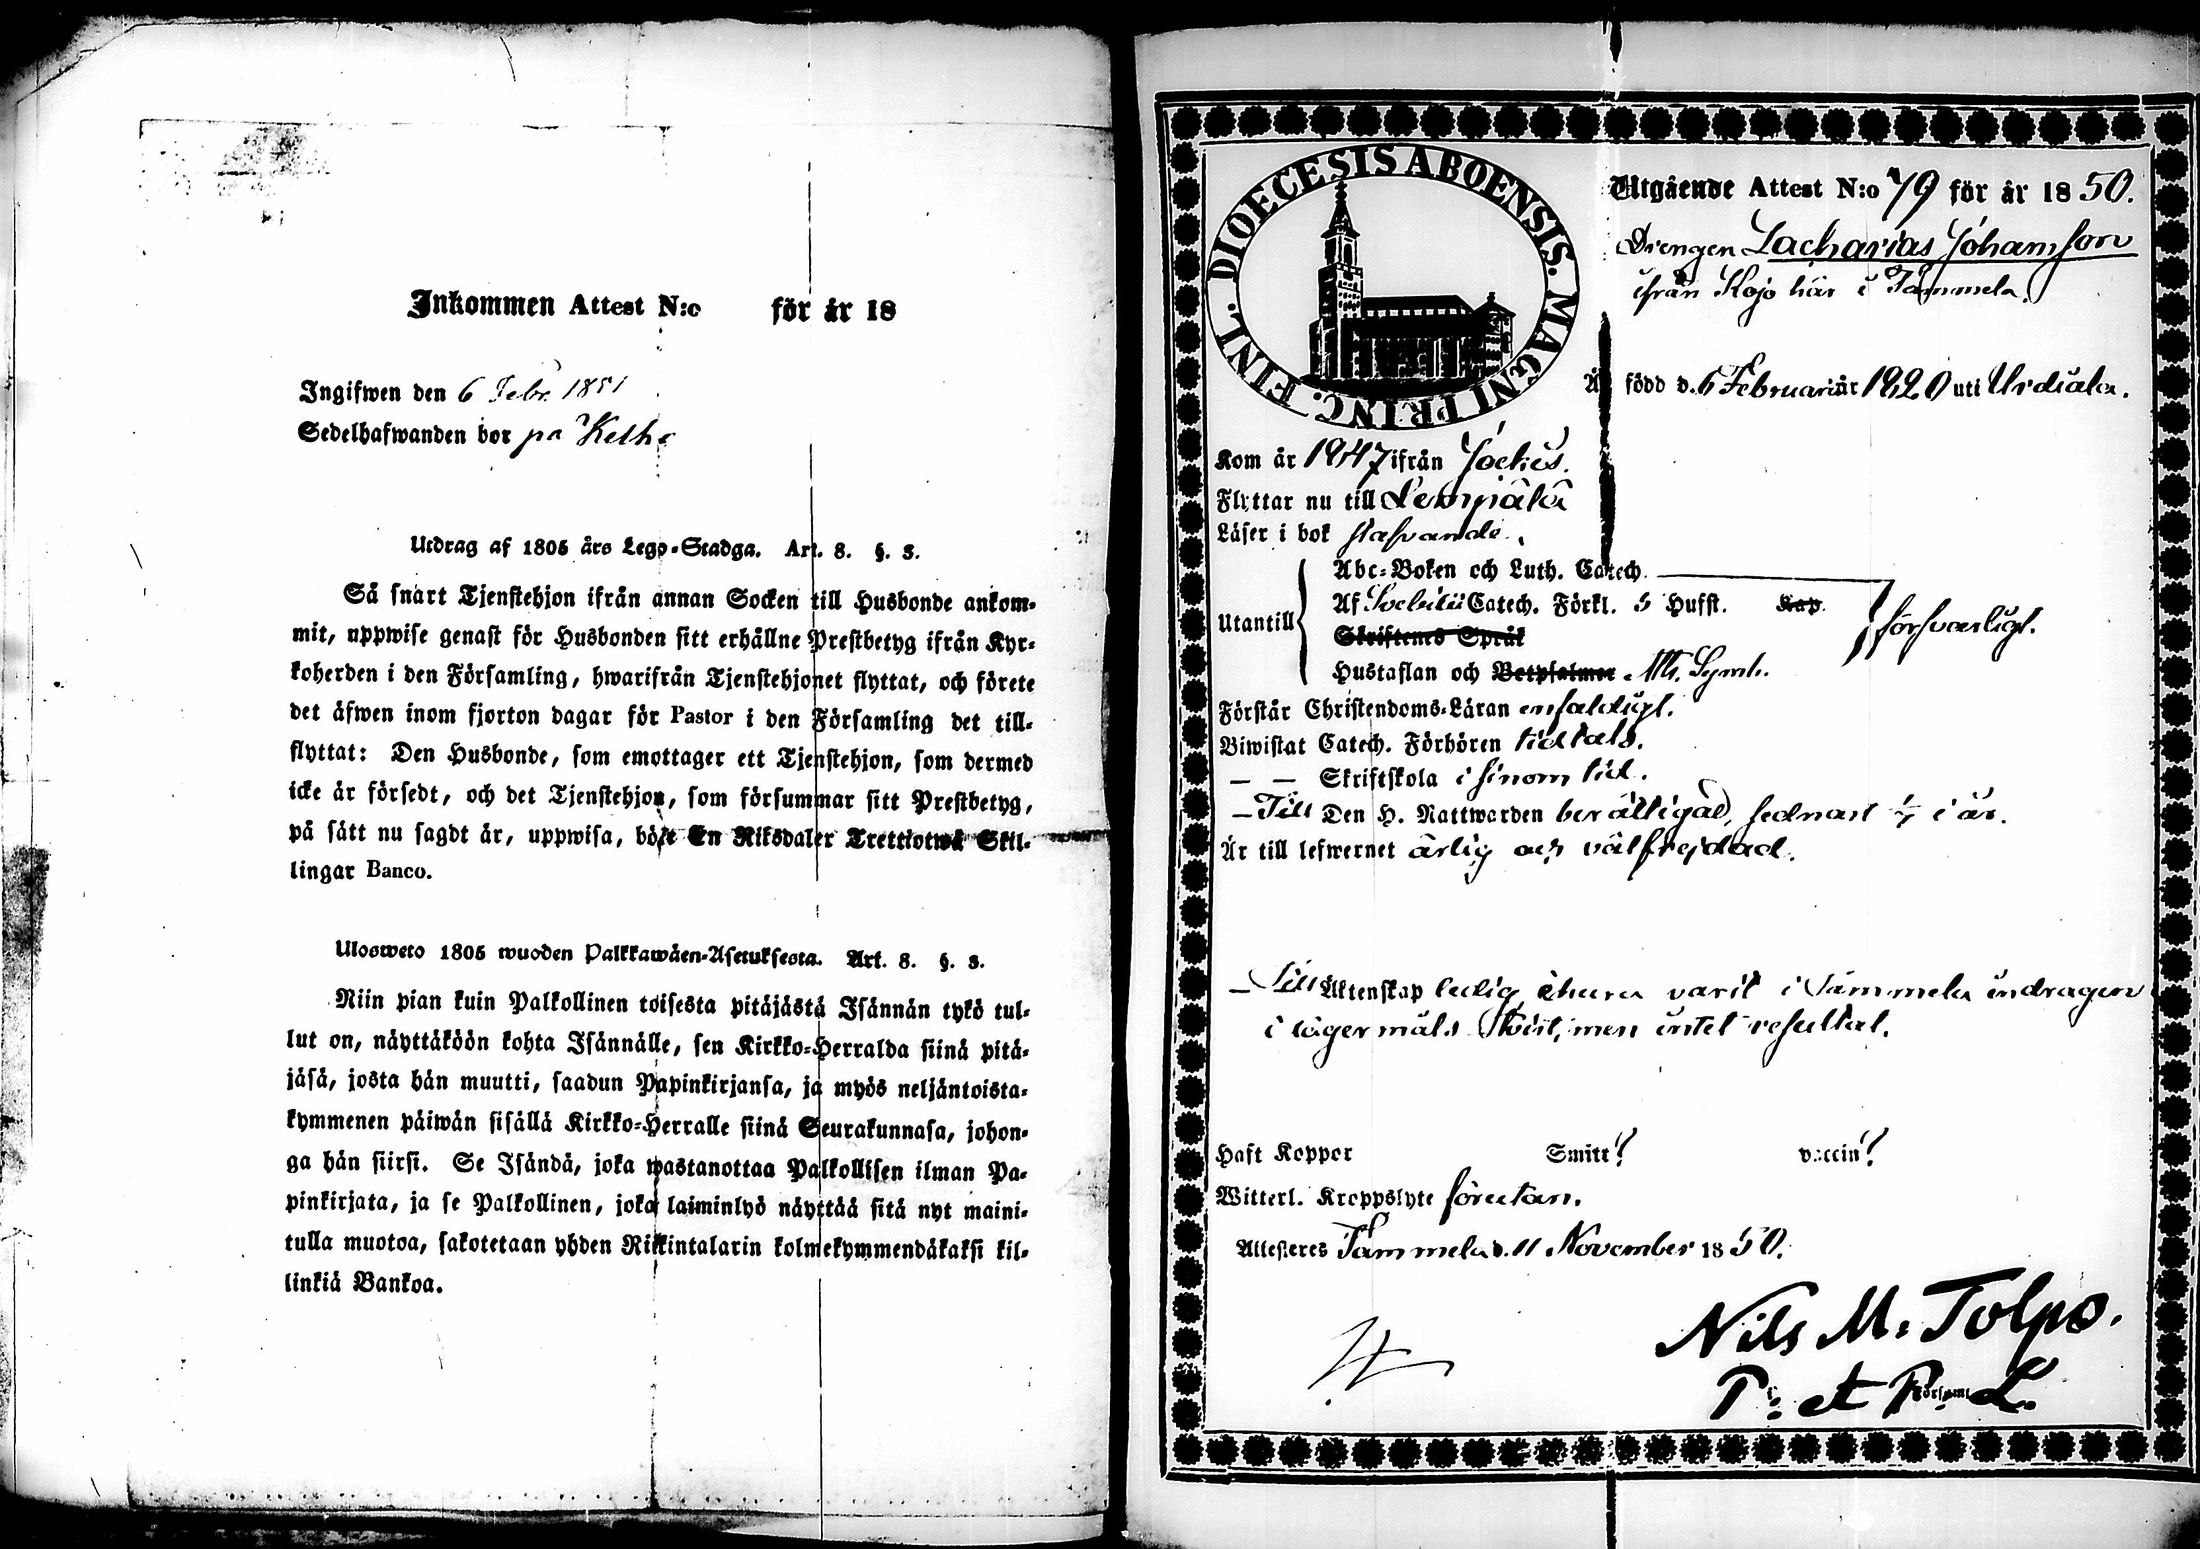 Inkommen Attest N:o för år 18
Ingifwen den 6 Febr. 1851
Sedelhafwanden bor på
Utdrag af 1805 års Lego-Stadga. Art. 8. §. 3.
Så snart Tjenstehjon ifrån annan Socken till Husbonde ankom-
mit, uppwise genast för Husbonden sitt erhållne Prestbetyg ifrån Kyr-
koherden i den Församling, hwarifrån Tjenstehjonet flyttat, och förete
det äfwen inom fjorton dagar för Pastor i den Församling det till-
flyttat: Den Husbonde, som emottager ett Tjenstehjon, som dermed
icke är försedt, och det Tjenstehjon, som försummar sitt Prestbetyg,
på sätt nu sagdt är, uppwisa, böte En Riksdaler Trettiotwå Skil-
lingar Banco.
Ulosweto 1805 wuoden Palkkawäen-Asetuksesta. Art. 8. §. 3.
Niin pian kuin Palkollinen toisesta pitäjästä Isännän tykö tul-
lut on, näyttäköön kohta Isännälle, sen Kirkko-Herralda siinä pitä-
jäsä, josta hän muutti, saadun Papinkirjansa, ja myös neljäntoista-
kymmenen päiwän sisällä Kirkko-Herralle siinä Seurakunnasa, johon-
ga hän siirsi. Se Isändä, joka wastanottaa Palkollisen ilman Pa-
pinkirjata, ja se Palkollinen, joka laiminlyö näyttää sitä nyt maini-
tulla muotoa, sakotetaan yhden Riikintalarin kolmekymmendäkaksi kil-
linkiä Bankoa.
FINL. DIOECESIS ABOENSIS. MAGNI PRINC.
Utgående Attest N:o 79 för år 1850.
Drengen Zacharias Johansson
ifrån Kojo här i Tammela.
Är född d. 6 Februari år 1820 uti Urdiala.
Kom år 1847 ifrån Jockis.
Flyttar nu till Lempälä
Läser i bok stafvande.
Abc-Boken och Luth. Catech.
Utantill Af Svebilii Catech. Förkl. 5 Hufst. Kap. försvarligt.
Skriftenes Språk
Hustaflan och Betpsalmer Ath. Symb.
Förstår Christendoms-Läran enfaldigt.
Biwistat Catech. Förhören tidtals.
— — Skriftskola i sinom tid.
— Till Den H. Nattwarden berättigad, sednast 1/7 i år.
Är till lefwernet ärlig och välfrejdad.
— Till Äktenskap ledig, ehuru varit i Tammela indragen
i lägermåls tvist, men intet resultat.
Haft Koppor Smitt? vaccin?
Witterl. Kroppslyte förutan.
Attesteres Tammela d. 11 November 1850.
Nils M. Tolpo.
P. et P. Församl. L.